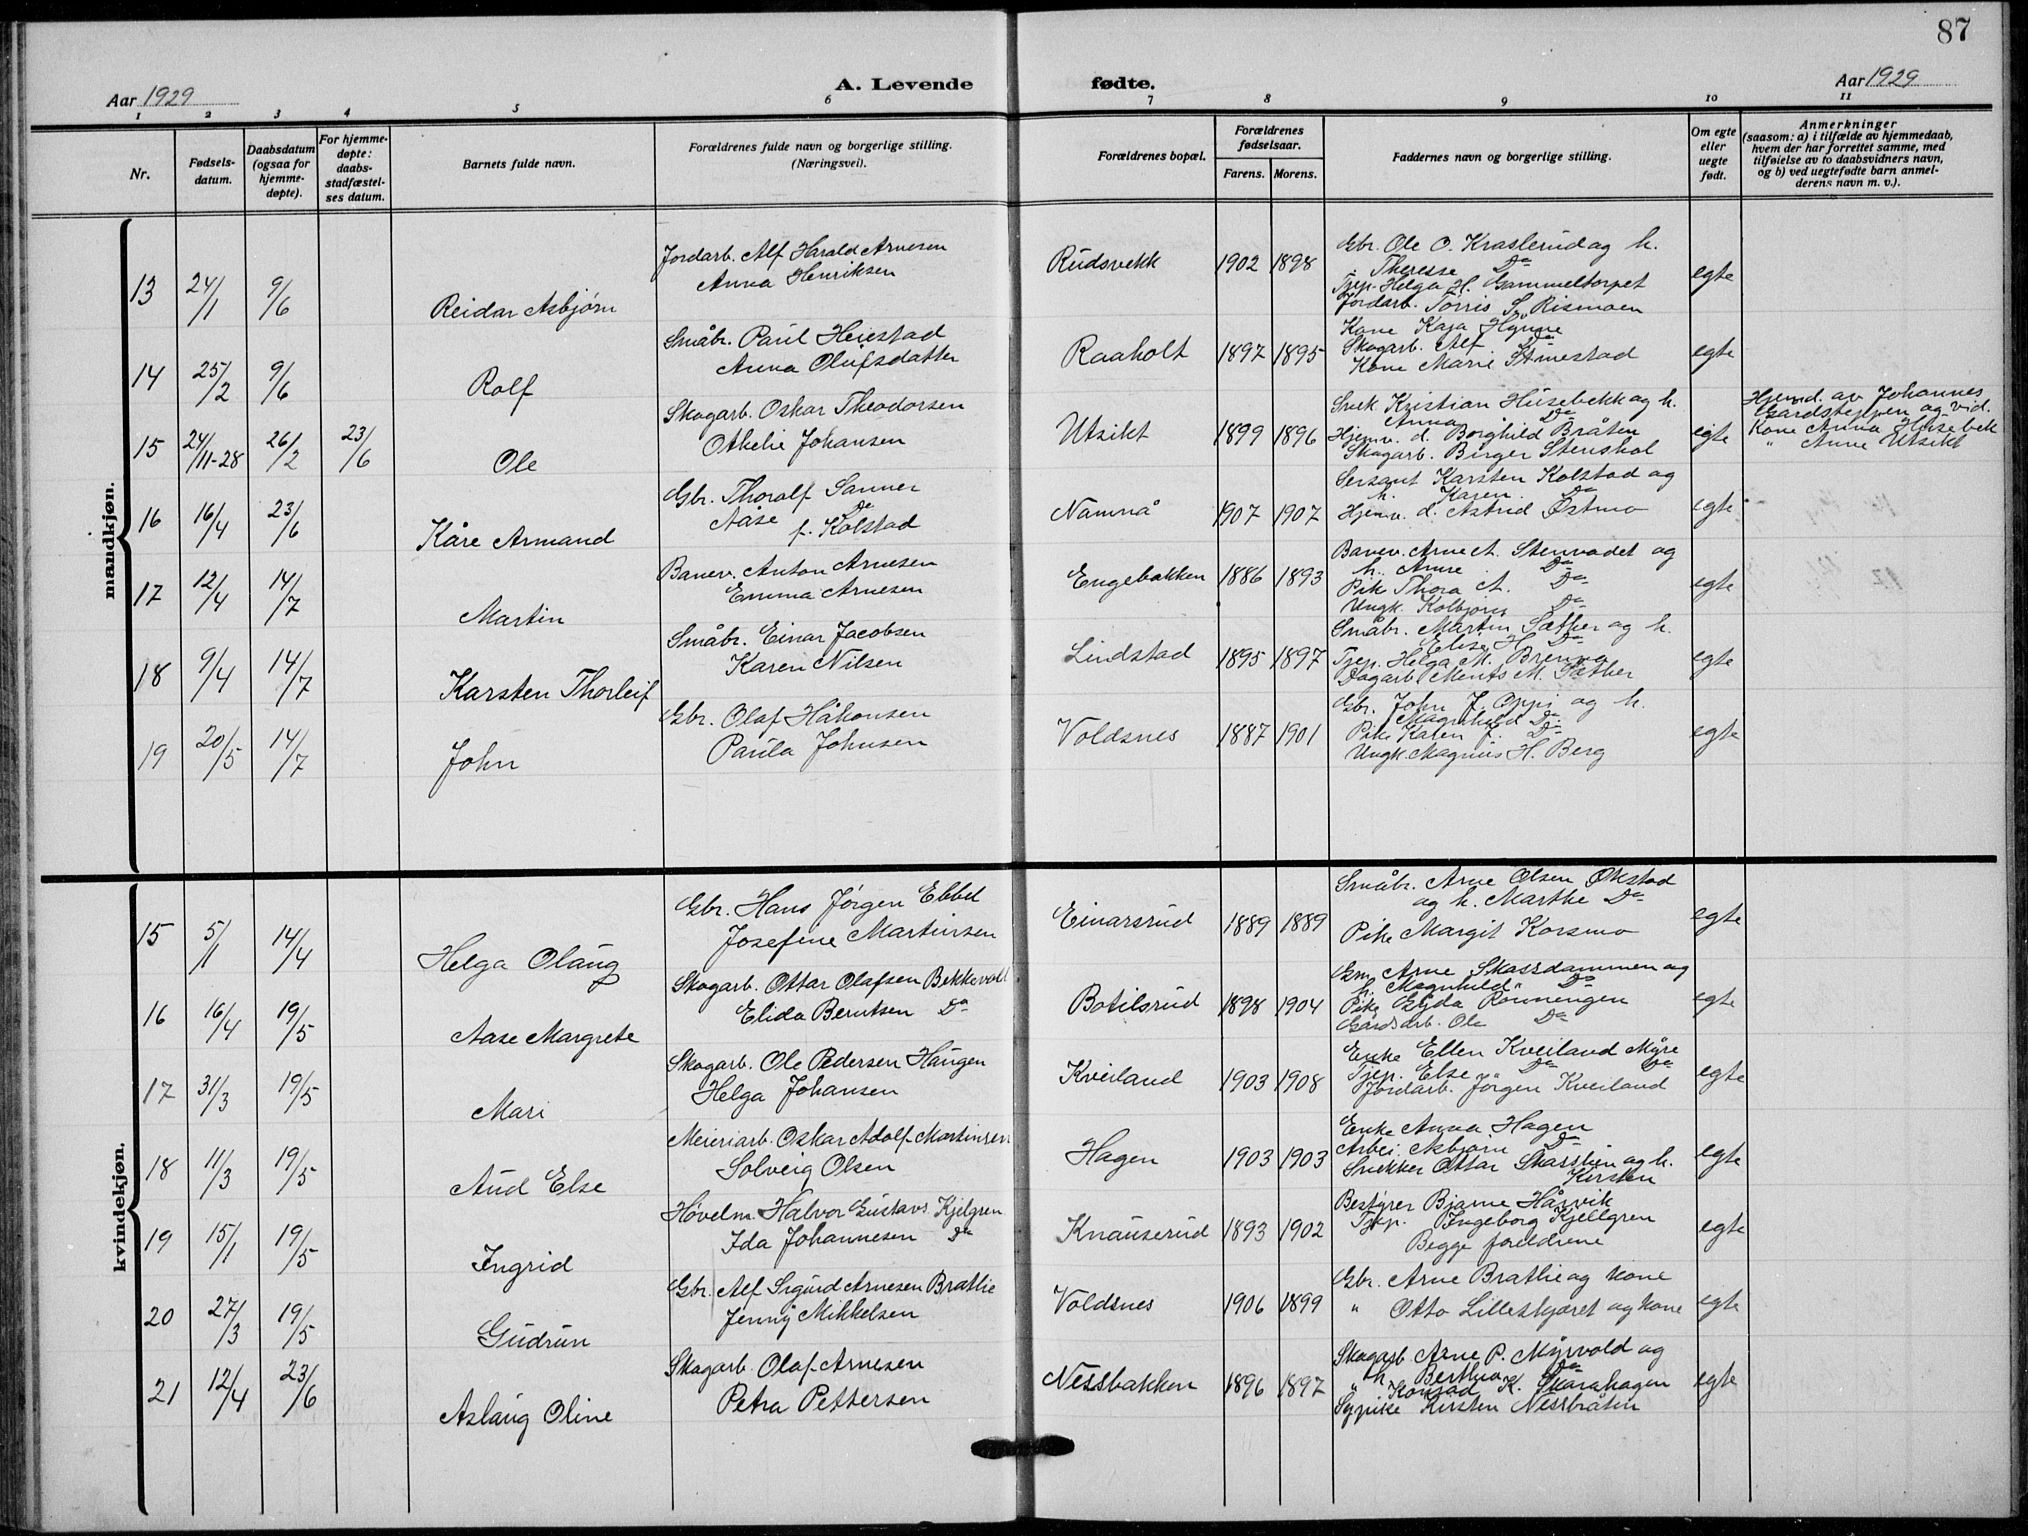 87
A. Levende fødte.
Aar 1929
Aar 1929
1 2 3 4 5 6 7 8 9 10 11
Nr.
Fødsels-
datum.
Daabsdatum
(ogsaa for
hjemme-
døpte).
For hjemme-
døpte:
daabs-
stadfæstel-
ses datum.
Barnets fulde navn.
Forældrenes fulde navn og borgerlige stilling.
(Næringsvei).
Forældrenes bopæl.
Forældrenes
fødselsaar.
Farens. Morens.
Faddernes navn og borgerlige stilling.
Om egte
eller
uegte
født.
Anmerkninger
(saasom: a) i tilfælde av hjemmedaab,
hvem der har forrettet samme, med
tilføielse av to daabsvidners navn,
og b) ved uegtefødte barn anmel-
derens navn m. v.).
mandkjøn.
13 24/1 9/6 Reidar Asbjørn
Jordarb. Alf Harald Arnesen
Anna Henriksen
Rudsvekk 1902 1898
Gbr. Ole O. Kraslerud og h.
Therese Do
Tjep. Helga H. Gammeltorpet
Jordarb. Torris S. Rismoen
egte
14 25/2 9/6 Rolf
Småbr. Paul Heiestad
Anna Olufsdatter
Raaholt 1897 1895
Kone Kaja Hynne
Skogarb. Alf Do
Kone Marie Stmestad
egte
15 24/11-28 26/2 23/6 Ole
Skogarb. Oskar Theodorsen
Othelie Johansen
Utsikt 1899 1896
Snek Kristian Husebekk og h.
Anna Do
Hjemv. d. Borghild Bråten
Skogarb. Birger Stenshol
egte
Hjemd. av Johannes
Gardsteppen og vid.
Kone Anna Husebek
" Anne Utsikt
16 16/4 23/6 Kåre Armand
Gbr. Thoralf Sanner
Aase Do
f. Kolstad
Namnå 1907 1907
Sersant Karsten Kolstad og
h. Karen Do
Hjemv. d. Astrid Østmo
egte
17 12/4 14/7 Martin
Banev. Anton Arnesen
Emma Arnesen
Engebakken 1886 1893
Banev. Arne A. Stenvadet og
h. Anne Do
Pik Thora A. Do
Ungk. Kolbjørn Do
egte
18 9/4 14/7 Karsten Thorleif
Småbr. Einar Jacobsen
Karen Nilsen
Lindstad 1895 1897
Småbr. Martin Sæther og h.
Elise H. Do
Tjep. Helga M. Brenna
Dagarb Ments M. Sæther
egte
19 20/5 14/7 John
Gbr. Olaf Håkonsen
Paula Johnsen
Voldsnes 1887 1901
Gbr. John J. Oppi og h.
Magnhild Do
Pike Karen J. Do
Ungk. Magnus H. Berg
egte
kvindekjøn.
15 5/1 14/4 Helga Olaug
Gbr. Hans Jörgen Ebbel
Josefine Martinsen
Einarsrud 1889 1889
Småbr. Arne Olsen Økstad
og h. Marthe Do
Pike Margit Korsmo
egte
16 16/4 19/5 Aase Margrete
Skogarb. Ottar Olafsen Bekkevold
Elida Berntsen Do
Botilsrud 1898 1904
Gm. Arne Skassdammen og
h. Magnhild Do
Pike Gyda Rønningen
Gårdsarb. Ole Do
egte
17 31/3 19/5 Mari
Skogarb. Ole Pedersen Haugen
Helga Johansen
Kveiland 1903 1908
Enke Ellen Kveiland Myre
Tjep. Else Do Do
Jordarb. Jörgen Kveiland
egte
18 11/3 19/5 Aud Else
Meieriarb. Oskar Adolf Martinsen
Solveig Olsen
Hagen 1903 1903
Enke Anna Hagen
Arbei. Asbjørn Do
Snekker Ottar Skasslien og h.
Kirsten
egte
19 15/1 19/5 Ingrid
Høvelm. Halvor Gustavs. Kjelgren
Ida Johannesen Do
Knauserud 1893 1902
Bestyrer Bjarne Hårvik
Tjep. Ingeborg Kjellgren
Begge foreldrene
egte
20 27/3 19/5 Gudrun
Gbr. Alf Sigurd Arnesen Brathe
Jenny Mikkelsen
Voldsnes 1906 1899
Gbr. Arne Bratlie og kone
" Otto Lilleskjæret og kone
egte
21 12/4 23/6 Aslaug Oline
Skogarb. Olaf Arnesen
Petra Pettersen
Nessbakken 1896 1897
Skogarb Arne P. Myrvold og
h. Berthea Do
" Konrad K. Skarahagen
Sypike Kirsten Nessbråten
egte